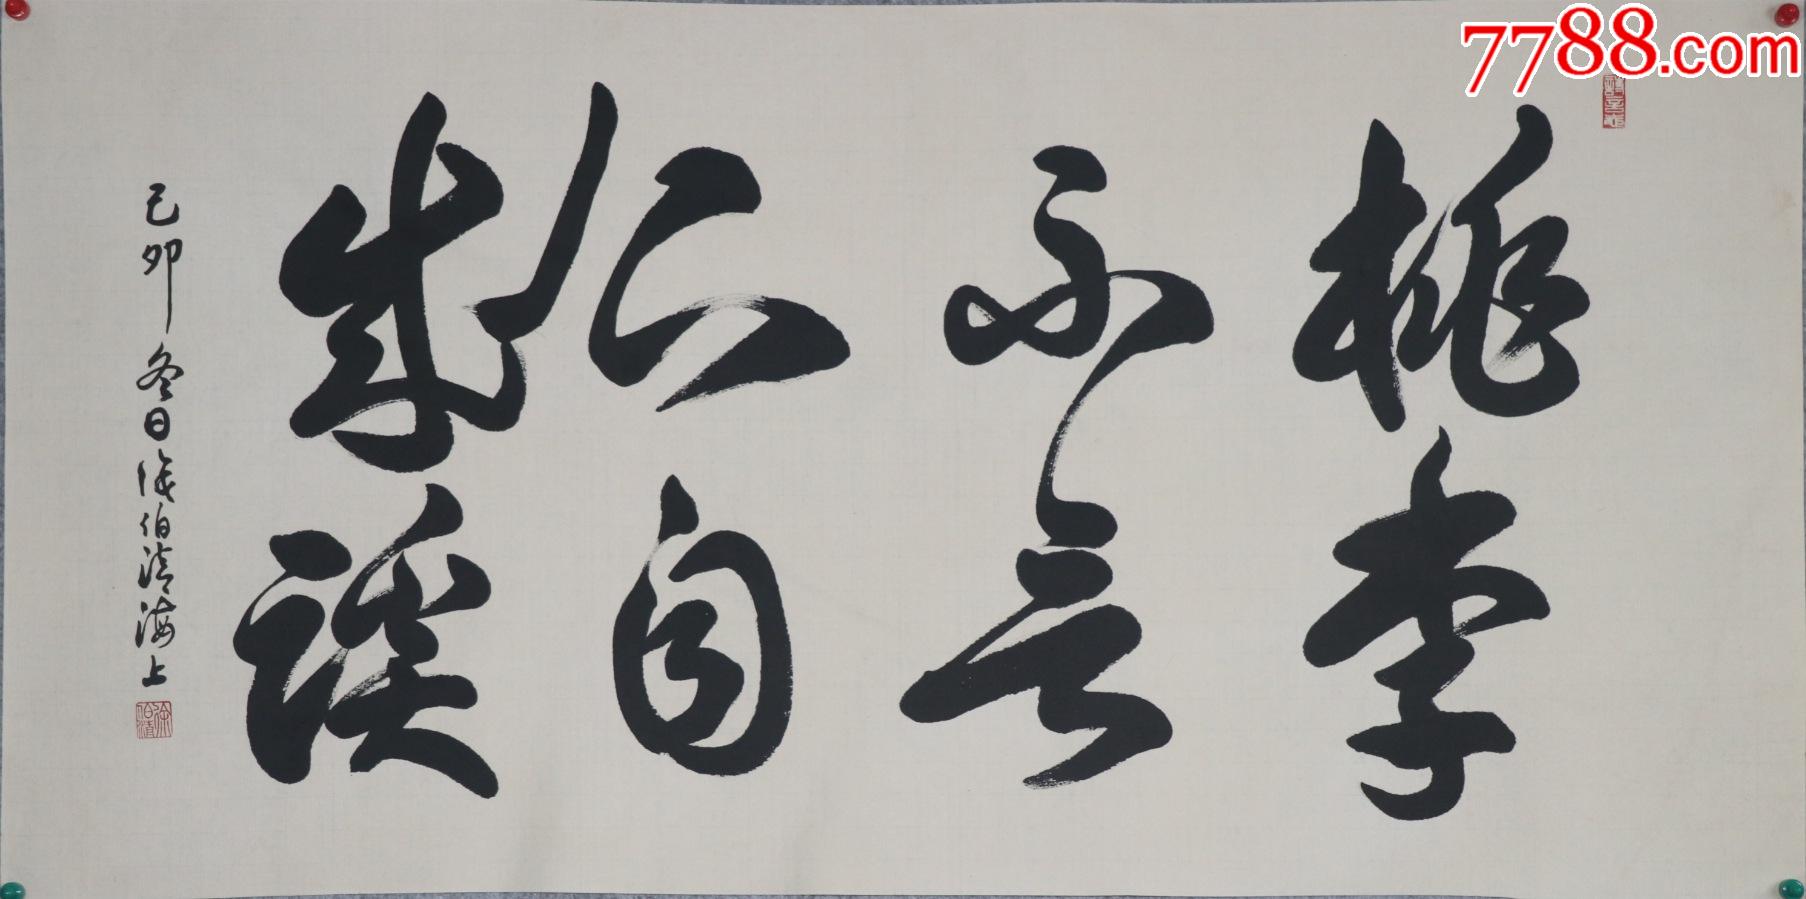 7788.com
桃李
不言
下自
成蹊
己卯冬日徐伯清海上
徐伯清